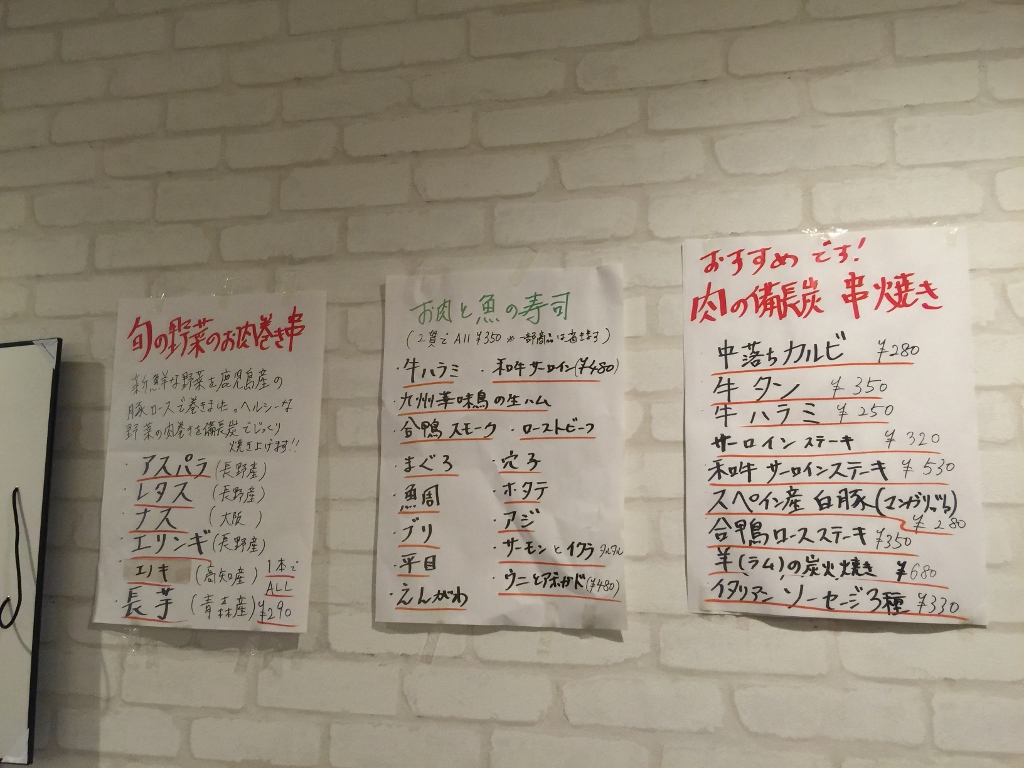 旬の野菜のお肉巻き串
新鮮な野菜を鹿児島産の
豚ロースで巻きました。ヘルシーな
野菜の肉巻きを備長炭でじっくり
焼き上げます!!
・アスパラ(長野産)
・レタス(長野産)
・ナス(大阪)
・エリンギ(長野産)
・エノキ(高知産)
・長芋(青森産)
1本で
ALL
¥290
お肉と魚の寿司
(2貫で All ¥350 ※一部商品は省きます)
・牛ハラミ ・和牛サーロイン(¥480)
・九州華味鳥の生ハム
・合鴨スモーク ・ローストビーフ
・まぐろ ・穴子
・ホタテ
・ブリ ・アジ
・平目 ・サーモンとイクラ タルタル
・えんがわ ・ウニとアボカド(¥480)
おすすめです!
肉の備長炭 串焼き
・中落ちカルビ ¥280
・牛タン ¥350
・牛ハラミ ¥250
・サーロインステーキ ¥320
・和牛サーロインステーキ ¥530
・スペイン産 白豚(マンガリッツァ) ¥280
・合鴨ロースステーキ ¥350
・羊(ラム)の炭火焼き ¥680
・イタリアンソーセージ3種 ¥330